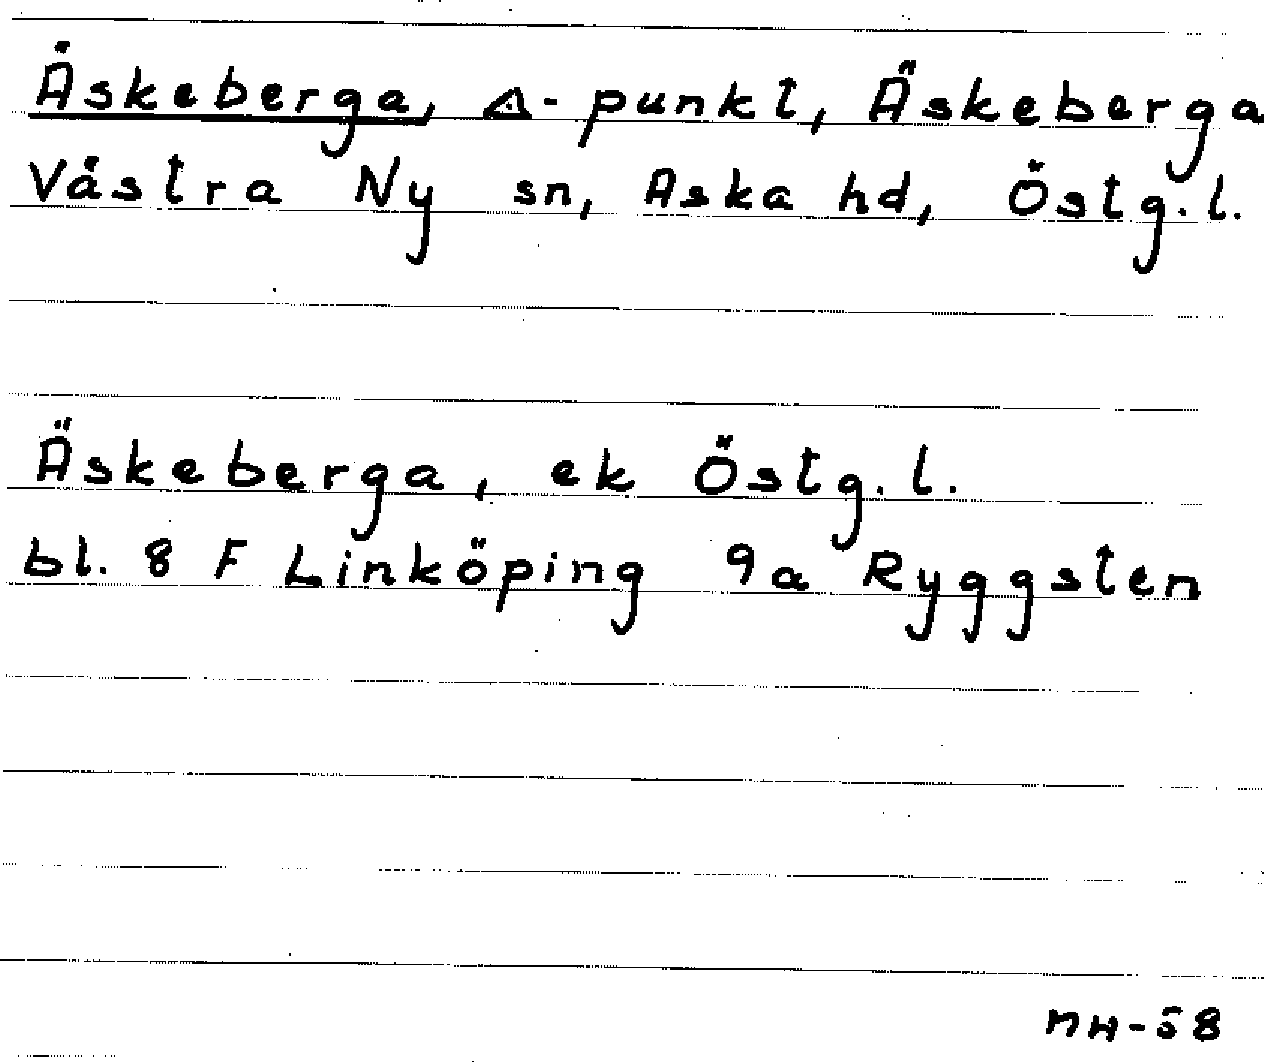 Äskeberga, △-punkt, Äskeberga
Västra Ny sn, Aska hd, Östg.l.
Äskeberga, ek Östg.l.
bl. 8 F Linköping 9a Ryggsten
MH-58